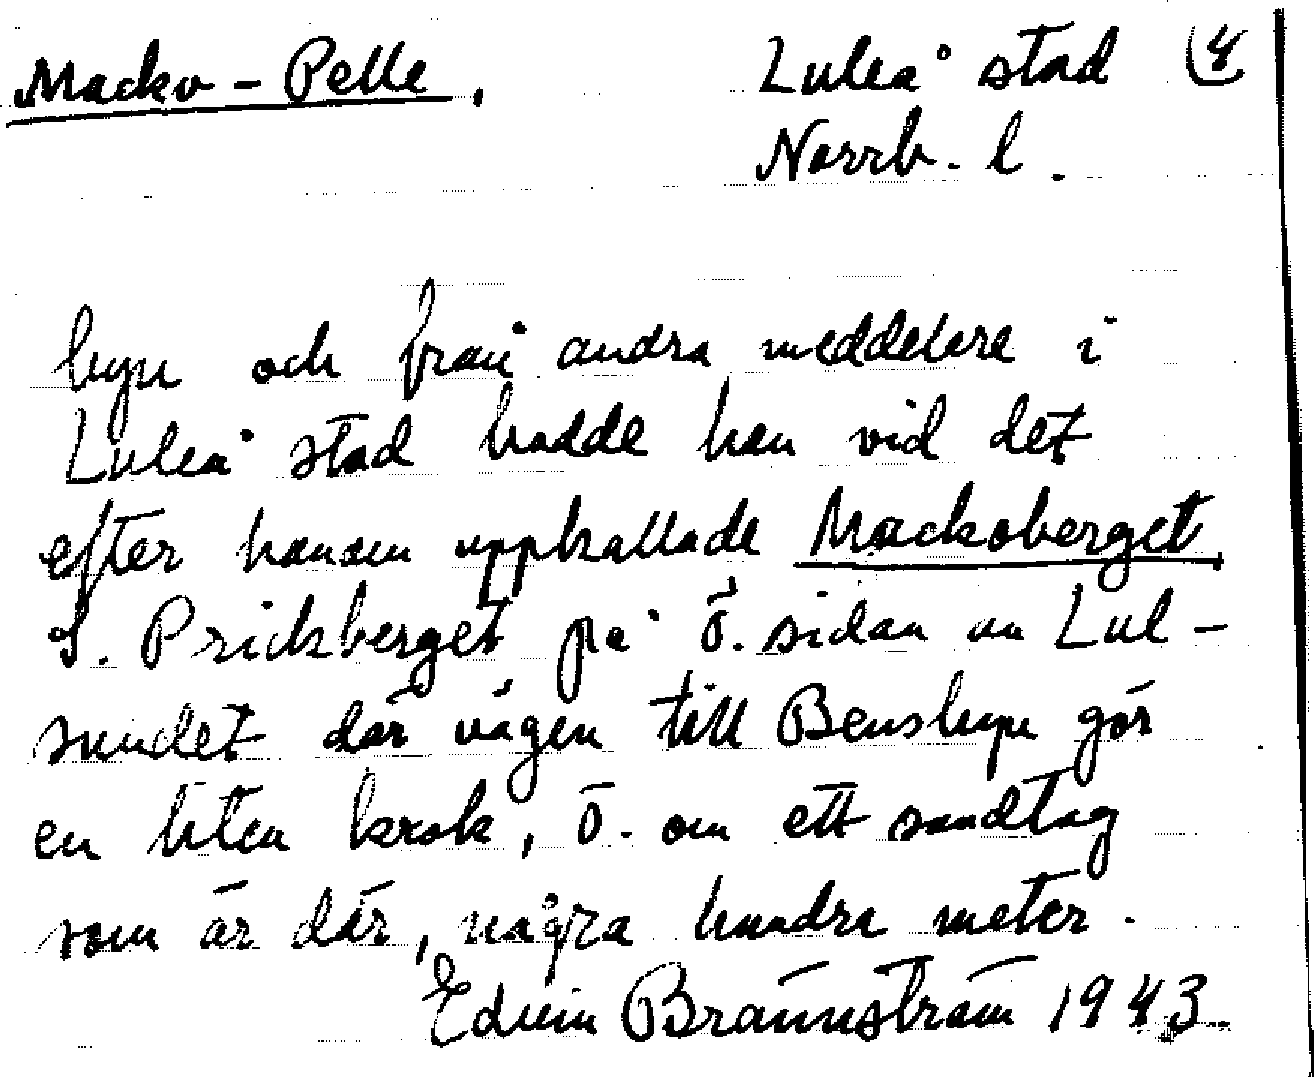 Macko-Pelle. Luleå stad (4
Norrb. l.
byn och från andra meddelare i
Luleå stad hadde han vid det
efter honom uppkallade Mackoberget
l. Pricksberget på ö. sidan av Lul-
sundet där vägen till Bensbyn gör
en liten krok, ö. om ett sandtag
som är där, några hundra meter.
Edvin Brännström 1943